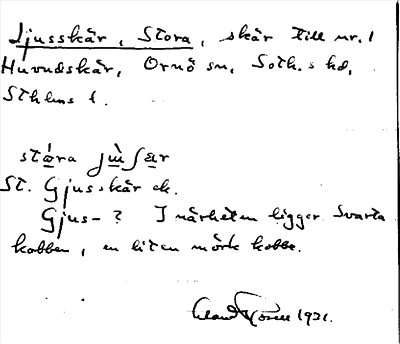 Ljusskär, Stora, skär till nr. 1
Huvudskär, Ornö sn, Soth.s hd,
Sthlms l.
stɑ́ra jùsʃær
St. Gjusskär ek.
Gjus- ? I närheten ligger Svarta
kobben, en liten mörk kobbe.
1931.